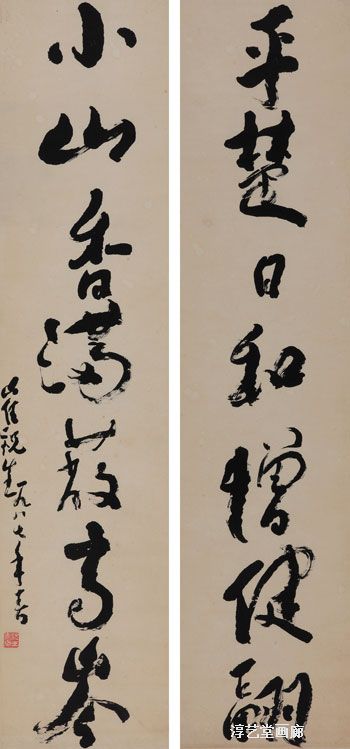 平楚日和憎健翮
小山香满蔽高岑
崔祝生一九八七年春
淳艺堂画廊